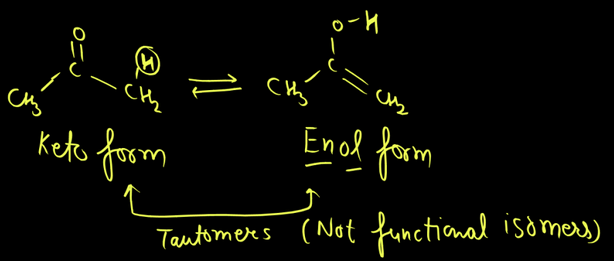 O O-H
C H C
CH3 CH2 ⇌ CH3 CH2
Keto form Enol form
Tautomers (Not functional isomers)